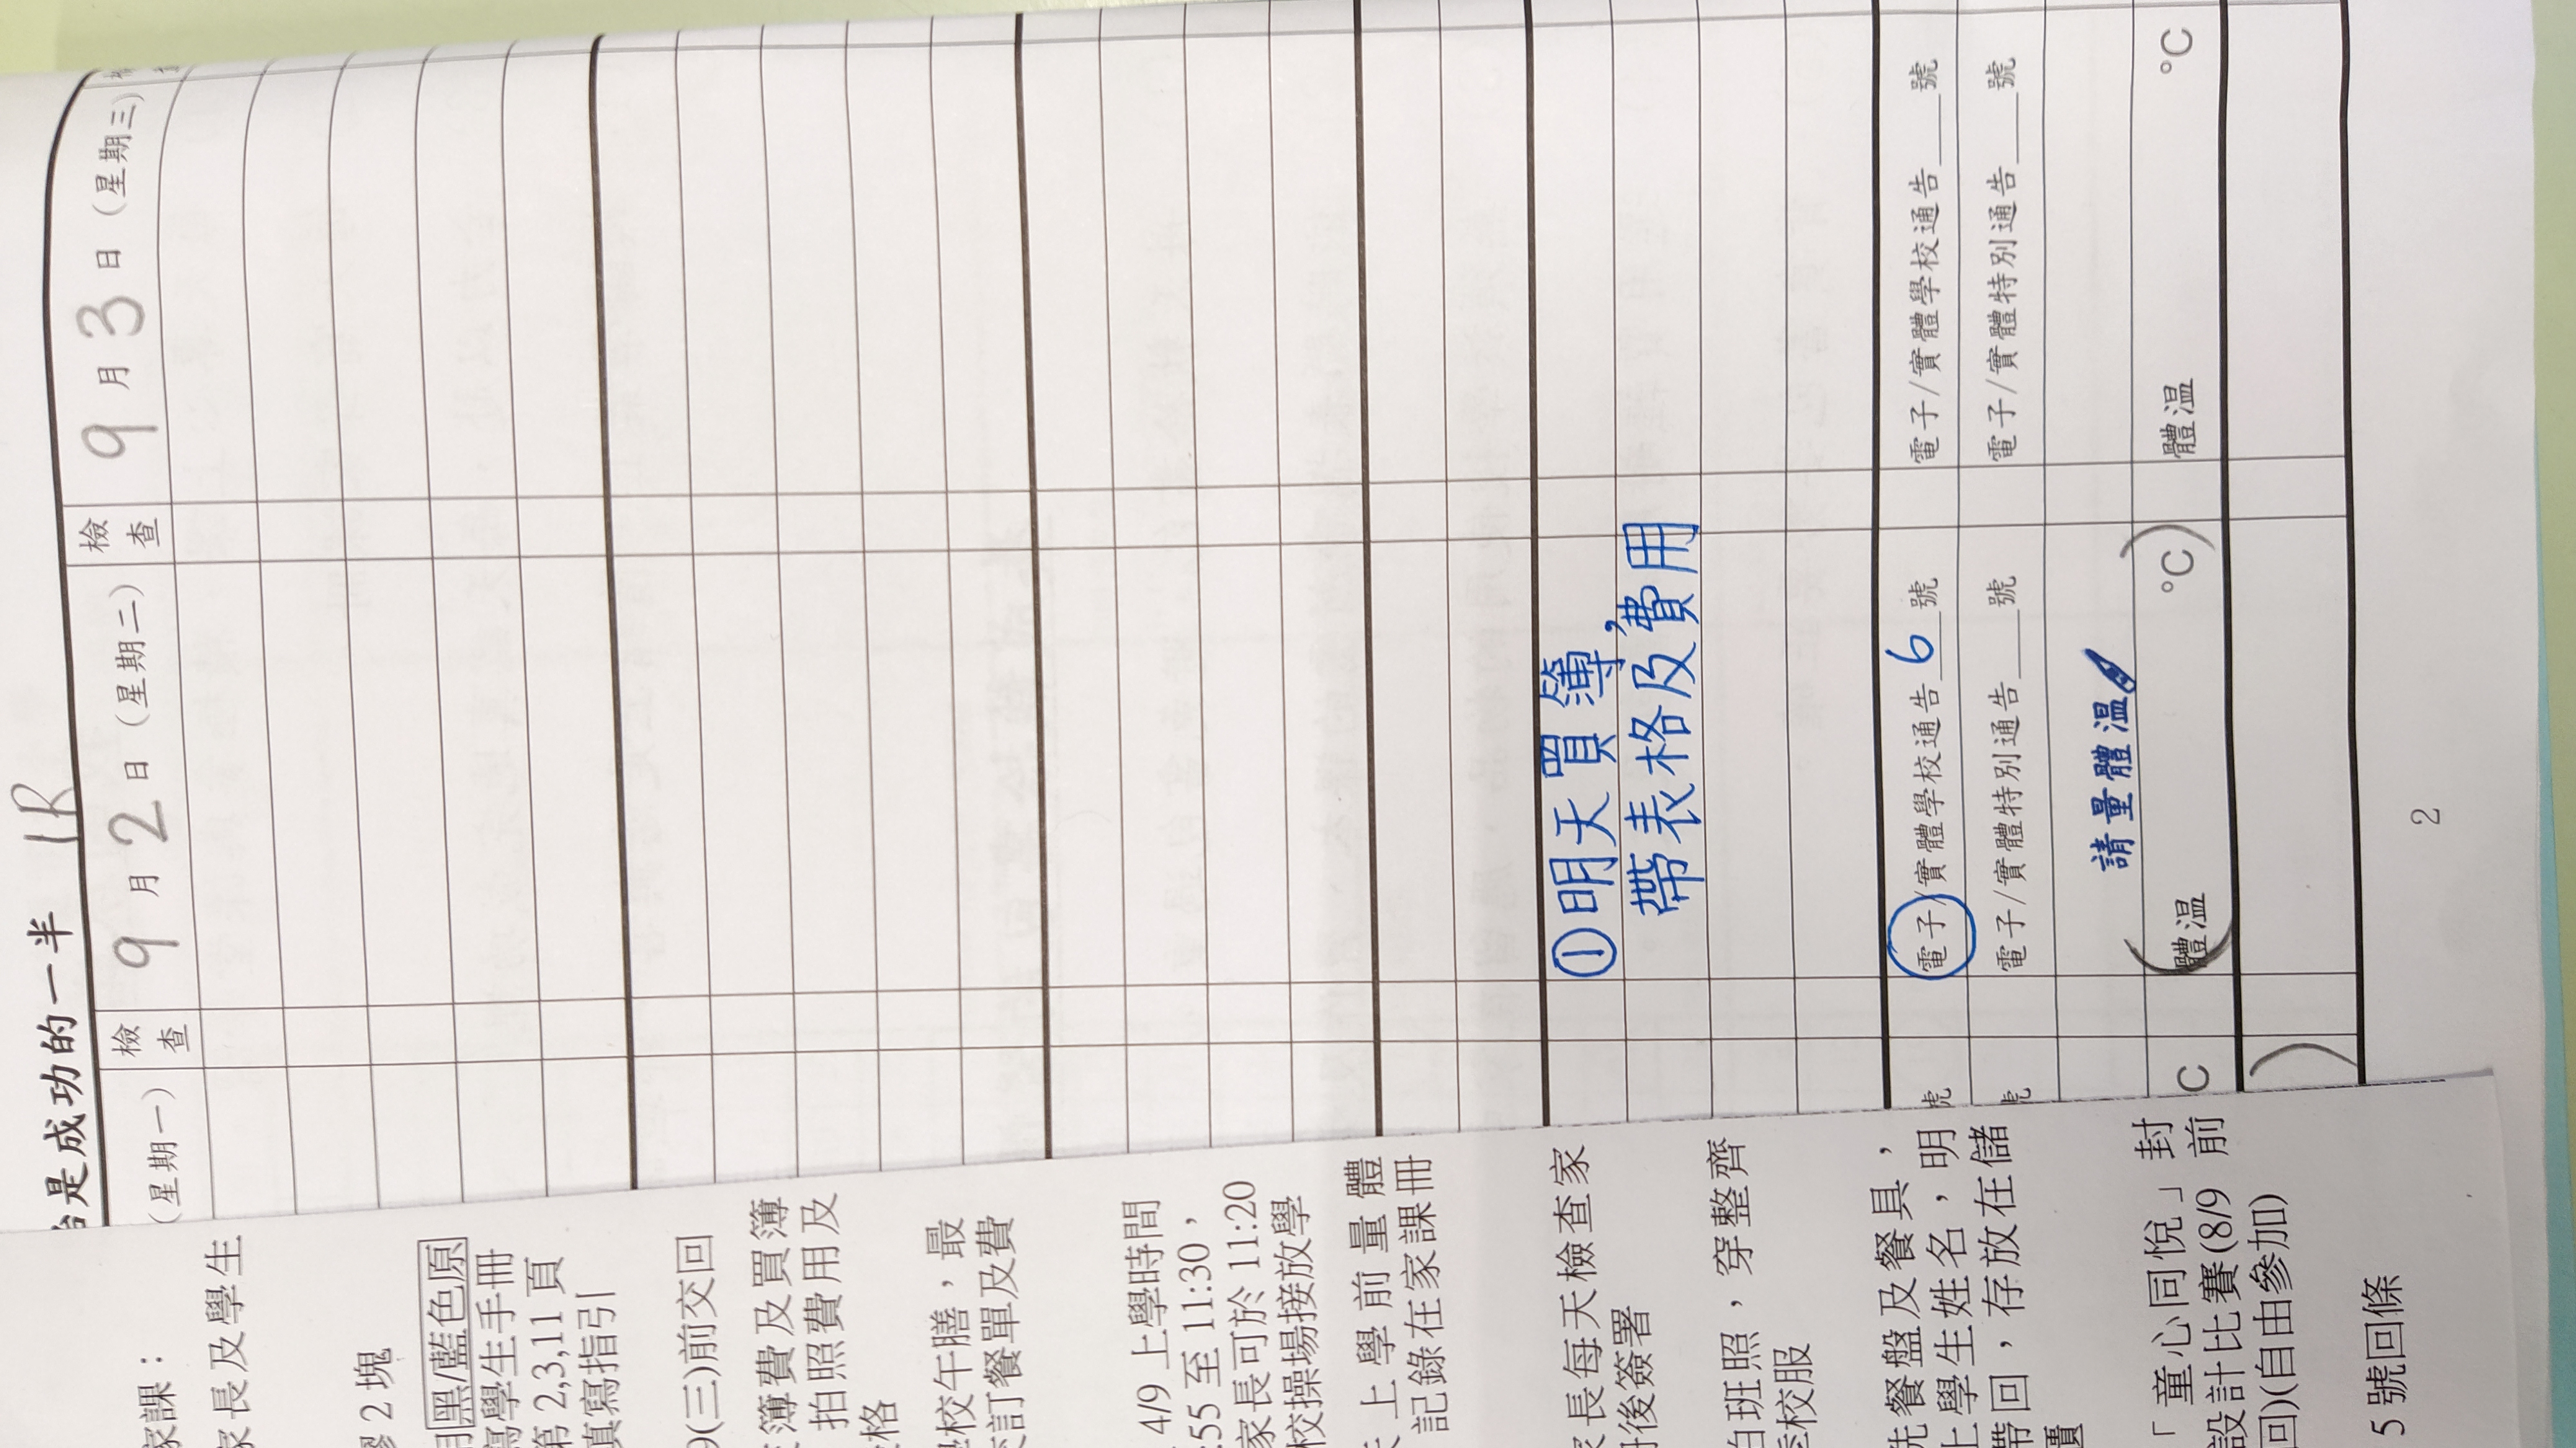 是成功的一半 1R
(星期一) 檢查 9月2日(星期二) 檢查 9月3日(星期三)
①明天買簿,
帶表格及費用
號 電子/實體學校通告 6 號 電子/實體學校通告___號
電子/實體特別通告___號 電子/實體特別通告___號
請量體溫
C 體溫 °C 體溫 °C
2
家課:
家長及學生
膠 2 塊
用黑/藍色原
寫學生手冊
第 2,3,11 頁
填寫指引
(三)前交回
簿費及買簿
拍照費用及
格
校午膳,最
訂餐單及費
4/9 上學時間
:55 至 11:30,
家長可於 11:20
校操場接放學
上學前量體
記錄在家課冊
長每天檢查家
後簽署
拍班照,穿整齊
校服
洗餐盤及餐具,
上學生姓名,明
帶回,存放在儲
「童心同悅」封
設計比賽(8/9 前
回)(自由參加)
5 號回條